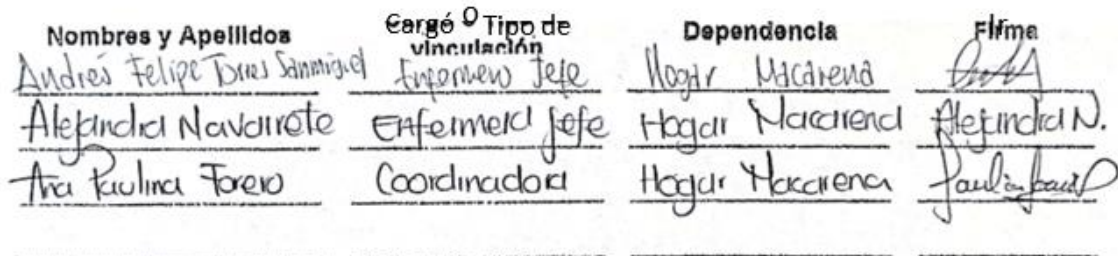 Nombres y Apellidos Cargo o Tipo de vinculación Dependencia Firma
Andrés Felipe Torres Sanmiguel Enfermero Jefe Hogar Macarena
Alejandra Navarrete Enfermera Jefe Hogar Macarena Alejandra N.
Ana Paulina Forero Coordinadora Hogar Macarena